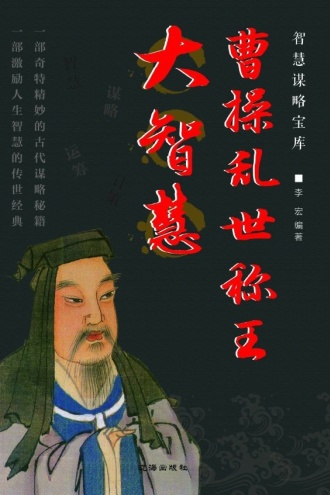 智慧谋略宝库
■李宏编著
曹操乱世称王
大智慧
一部奇特精妙的古代谋略秘籍
一部激励人生智慧的传世经典
智慧
谋略
运筹
辽海出版社